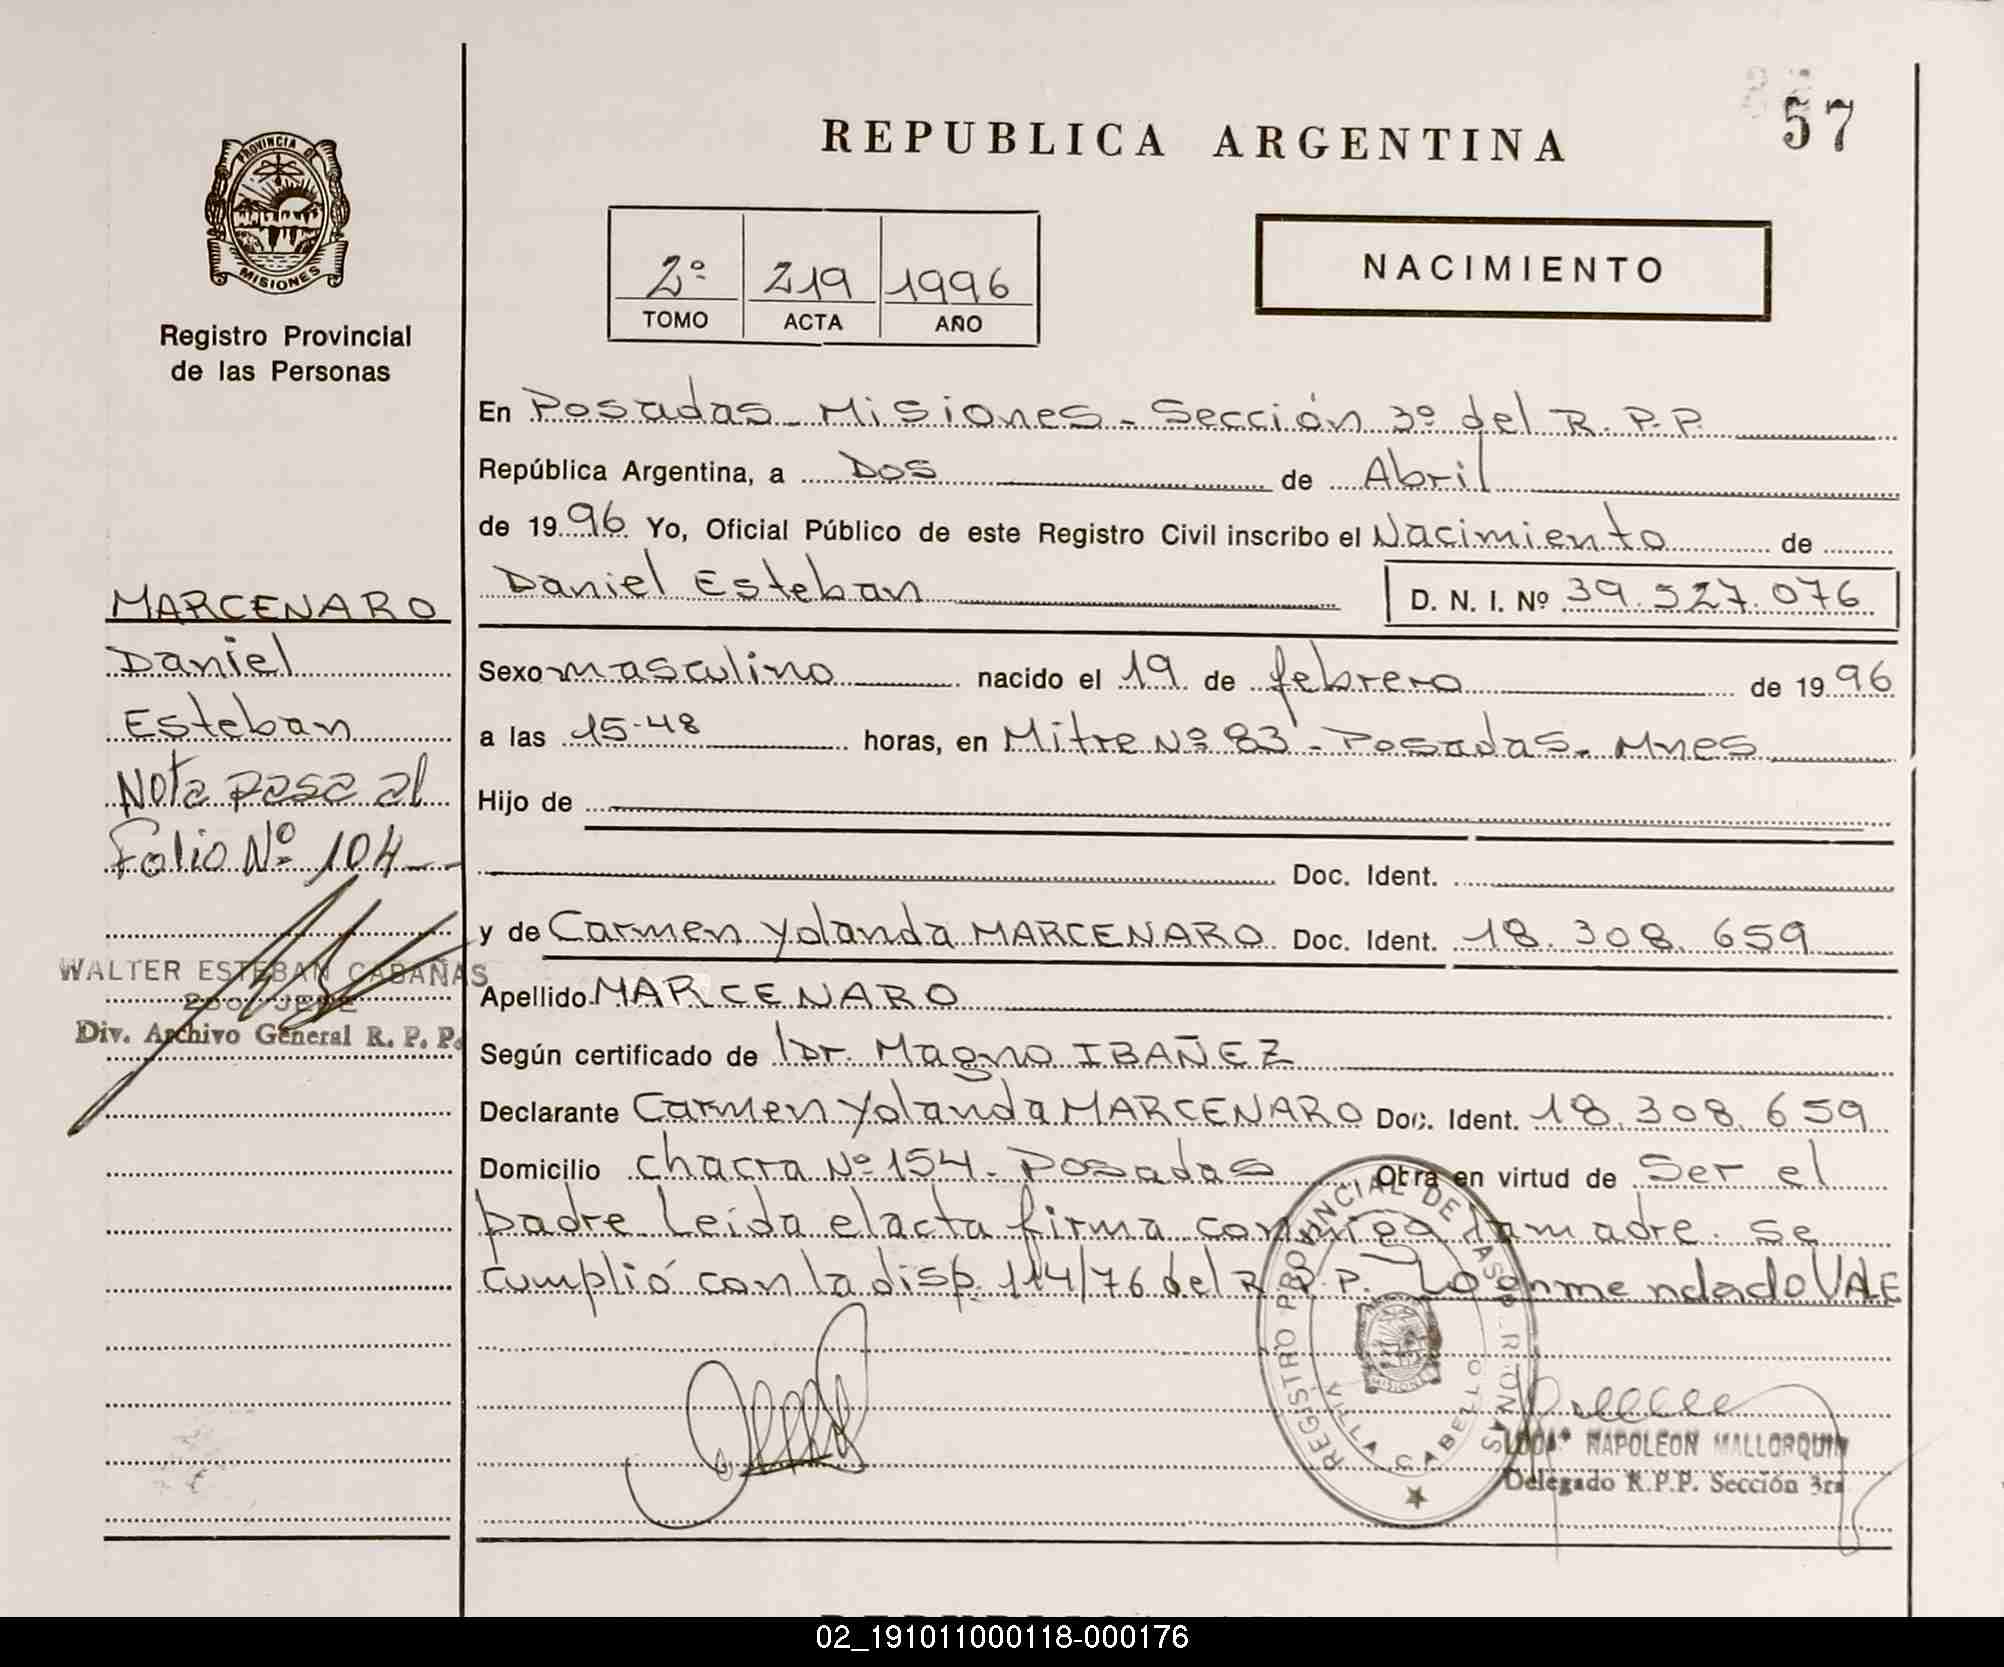 57
REPUBLICA ARGENTINA
PROVINCIA DE
MISIONES
Registro Provincial
de las Personas
2º 219 1996
TOMO ACTA AÑO
NACIMIENTO
En Posadas - Misiones - Sección 3º del R.P.P.
República Argentina, a Dos de Abril
de 1996 Yo, Oficial Público de este Registro Civil inscribo el Nacimiento de
Daniel Esteban D. N. I. Nº 39.527.076
MARCENARO
Daniel
Esteban
Nota pasa al
Folio Nº 104
WALTER ESTEBAN CABAÑAS
2DO. JEFE
Div. Archivo General R. P. P.
Sexo masculino nacido el 19 de febrero de 1996
a las 15-48 horas, en Mitre Nº 83 - Posadas - Mnes
Hijo de
Doc. Ident.
y de Carmen Yolanda MARCENARO Doc. Ident. 18.308.659
Apellido MARCENARO
Según certificado de Dr. Magno IBAÑEZ
Declarante Carmen Yolanda MARCENARO Doc. Ident. 18.308.659
Domicilio chacra Nº 154 - Posadas Obra en virtud de Ser el
padre Leída el acta firma conmigo la madre. se
cumplió con la disp. 114/76 del R.P.P. Lo enmendado VALE
REGISTRO PROVINCIAL DE LAS PERSONAS
VILLA CABELLO
MISIONES
NAPOLEON MALLORQUIN
Delegado R.P.P. Sección 3ra
02_191011000118-000176